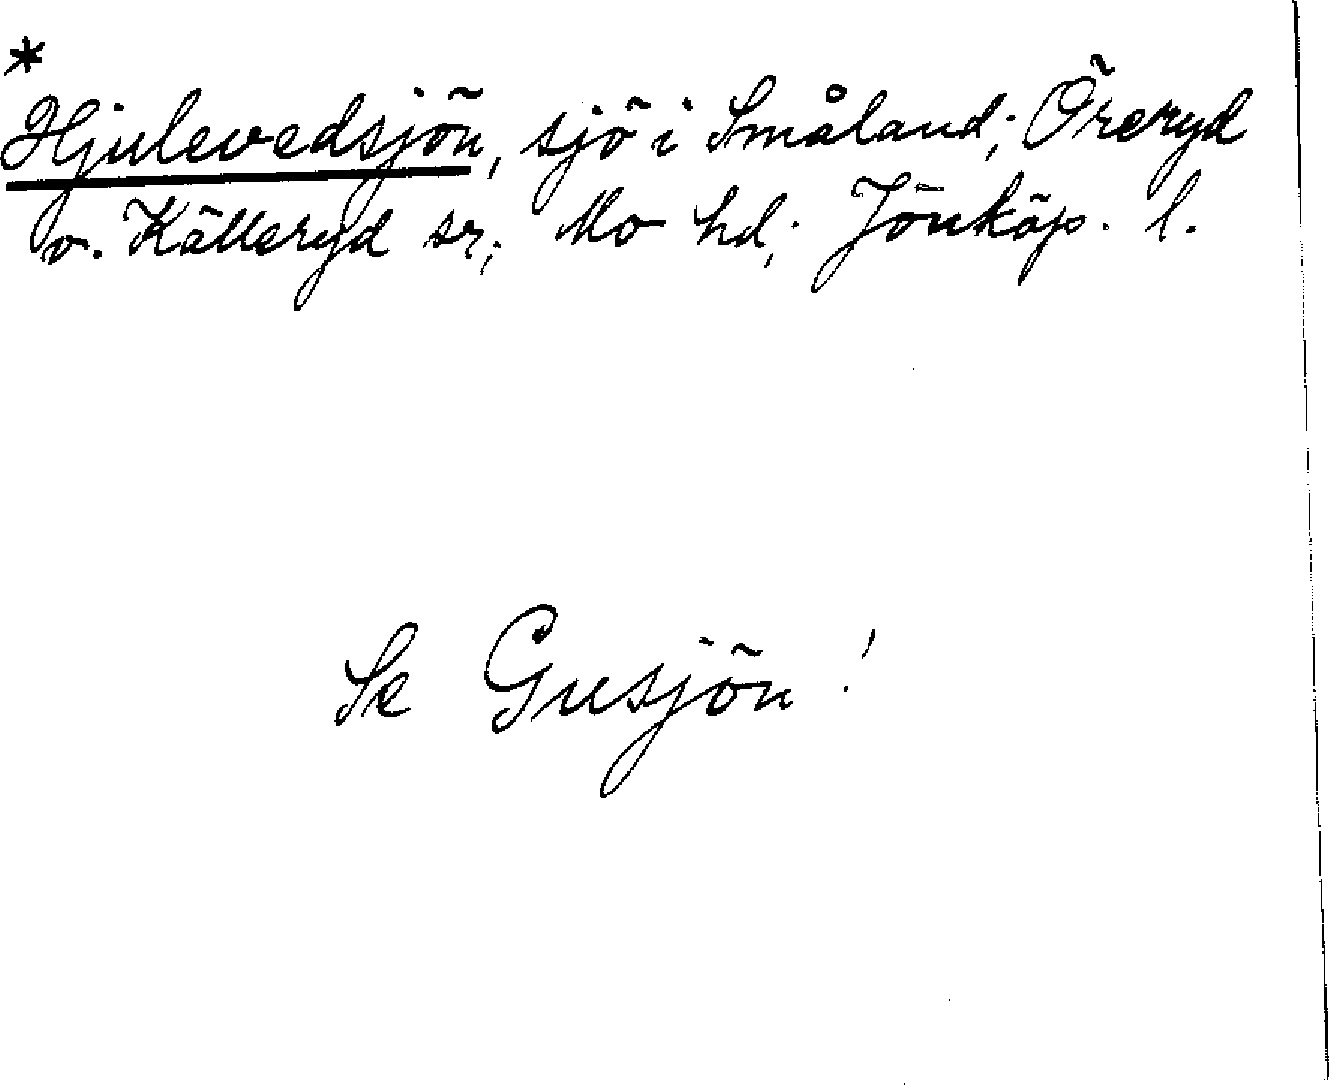 *
Hjulevedsjön, sjö i Småland; Öreryd
o. Källeryd sr; Mo hd; Jönköp. l.
Se Gusjön!